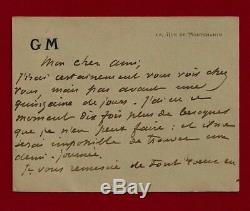 GM
10, RUE DE MONTCHANIN
Mon cher ami,
J'irai certainement vous voir chez
vous, mais pas avant une
quinzaine de jours. J'ai en ce
moment dix fois plus de besogne
que je n'en peux faire; et il me
serait impossible de trouver une
demi-journée.
Je vous remercie de tout cœur en